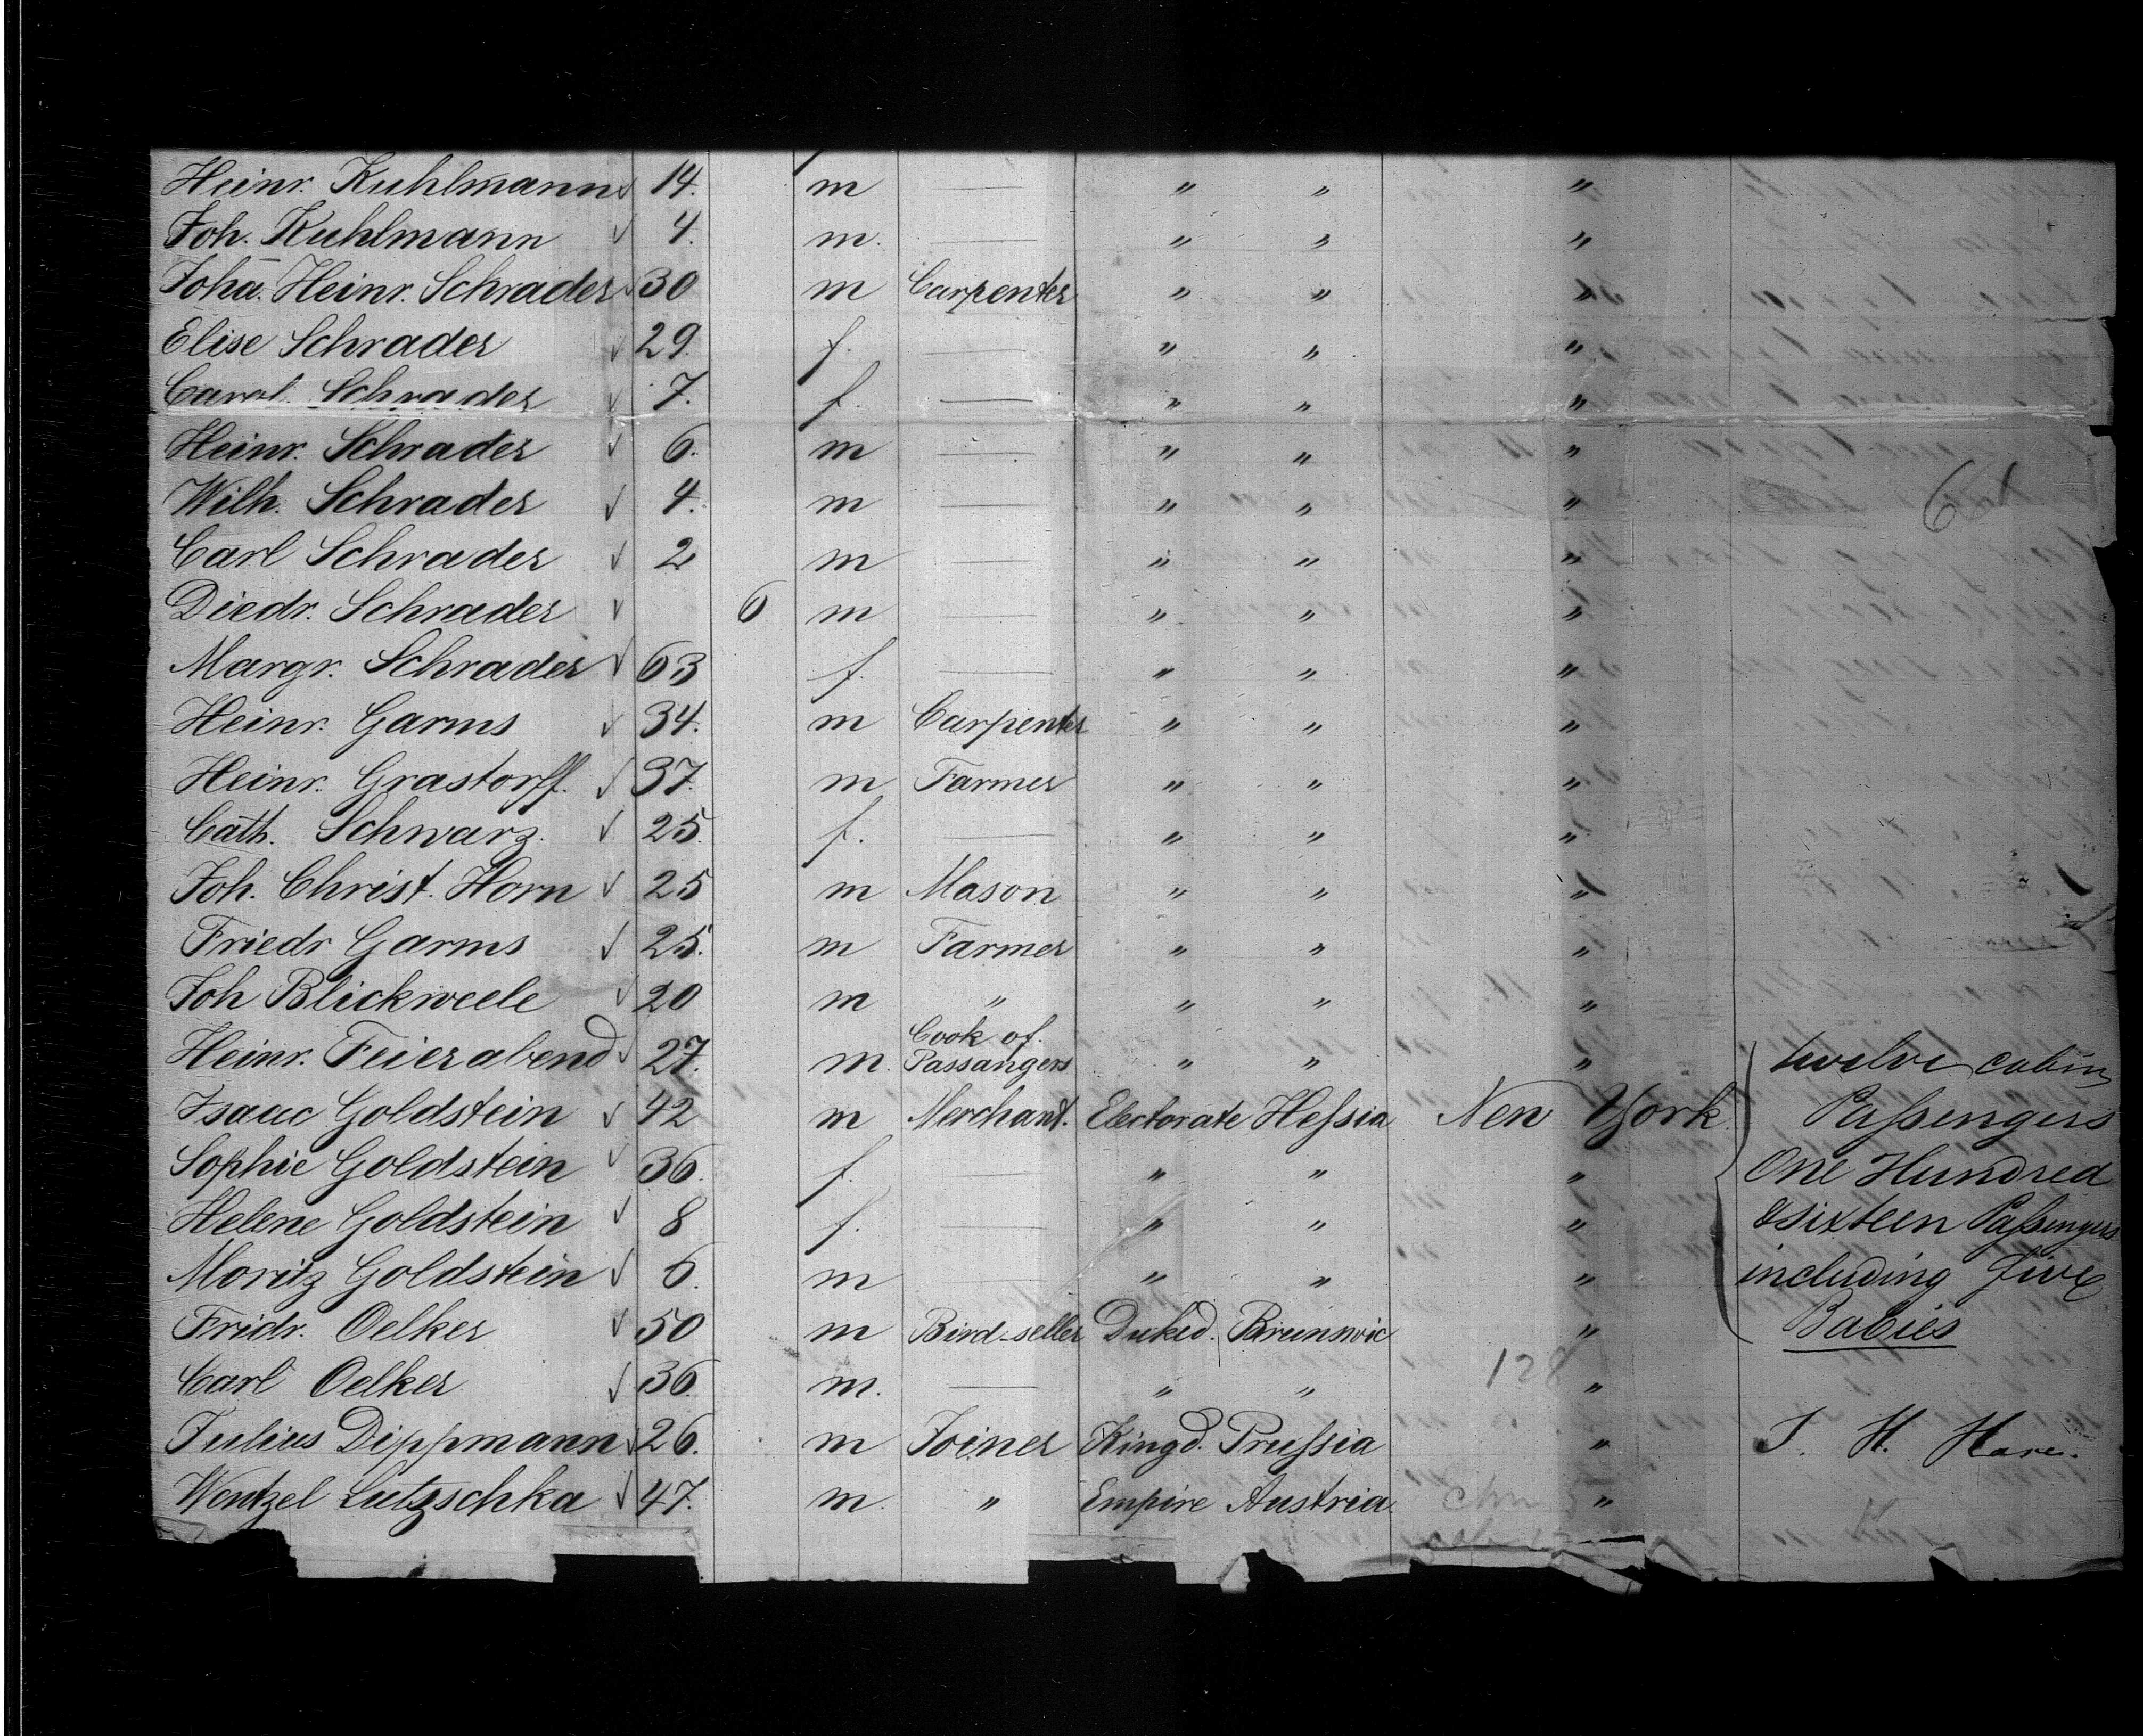 Heinr. Kuhlmann √ 14. m — " " "
Joh. Kuhlmann √ 4. m. — " " "
Joha. Heinr. Schrader √ 30 m Carpenter " " "
Elise Schrader √ 29. f. — " " "
Carol. Schrader √ 7. f. — " " "
Heinr. Schrader √ 6. m — " " "
Wilh. Schrader √ 4. m — " " "
Carl Schrader √ 2 m — " " "
Diedr. Schrader √ 6 m — " " "
Margr. Schrader √ 63 f. — " " "
Heinr. Garms √ 34. m Carpenter " " "
Heinr. Grastorff. √ 37. m Farmer " " "
Cath. Schwarz. √ 25. f. — " " "
Joh. Christ. Horn √ 25 m Mason " " "
Friedr Garms √ 25. m Farmer " " "
Joh Blickweele √ 20 m " " " "
Heinr. Feierabend √ 27. m. Cook of. Passangers " " "
Isaac Goldstein √ 42 m Merchant. Electorate Heſsia New York
Sophie Goldstein √ 36. f. — " " "
Helene Goldstein √ 8 f. — " " "
Moritz Goldstein √ 6. m — " " "
Fridr. Oelker √ 50 m Bird-seller Duked. Brunswic "
Carl Oelker √ 36. m. — " " 128 "
Julius Dippmann √ 26. m Joiner Kingd. Pruſsia "
Wentzel Lutzschka √ 47. m. " Empire Austria. "
twelve cabin
Paſsengers
One Hundred
& sixteen Paſsengers
including five
Babies